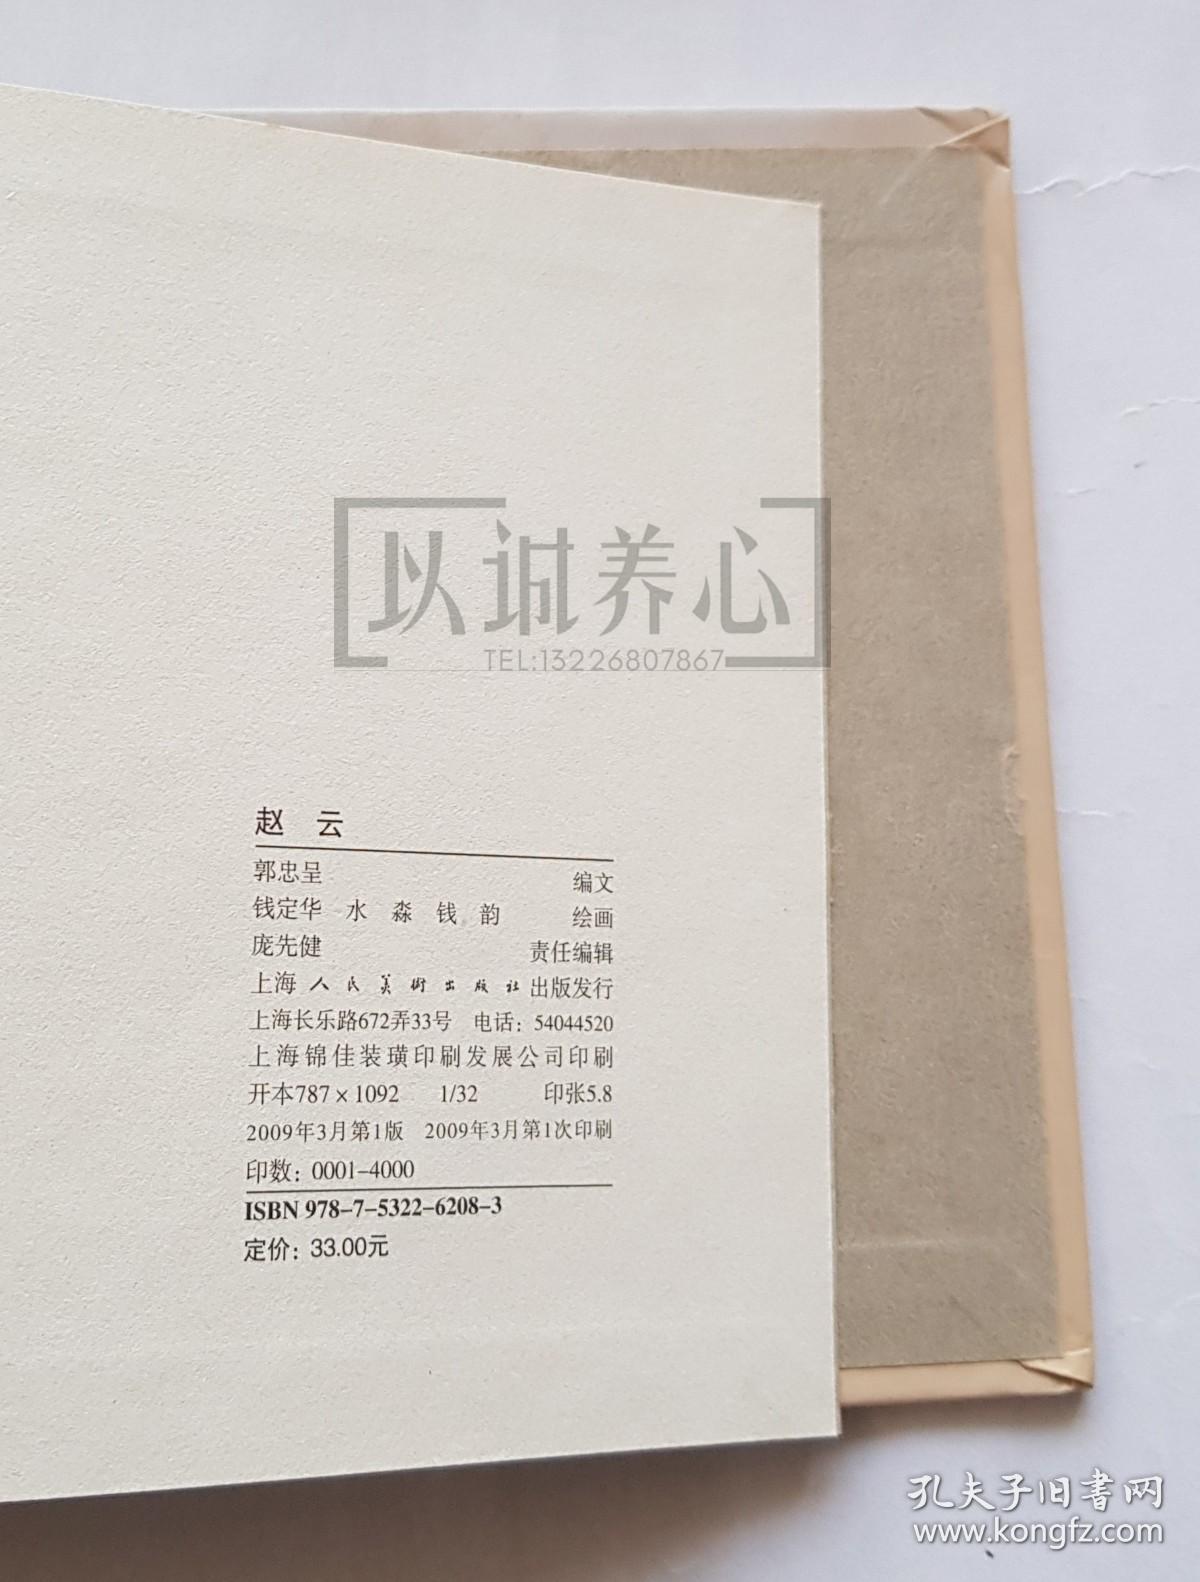 以诚养心
TEL:13226807867
赵 云
郭忠呈 编文
钱定华 水 淼 钱 韵 绘画
庞先健 责任编辑
上海人民美術出版社 出版发行
上海长乐路672弄33号 电话：54044520
上海锦佳装璜印刷发展公司印刷
开本787×1092 1/32 印张5.8
2009年3月第1版 2009年3月第1次印刷
印数：0001-4000
ISBN 978-7-5322-6208-3
定价：33.00元
孔夫子旧書网
www.kongfz.com